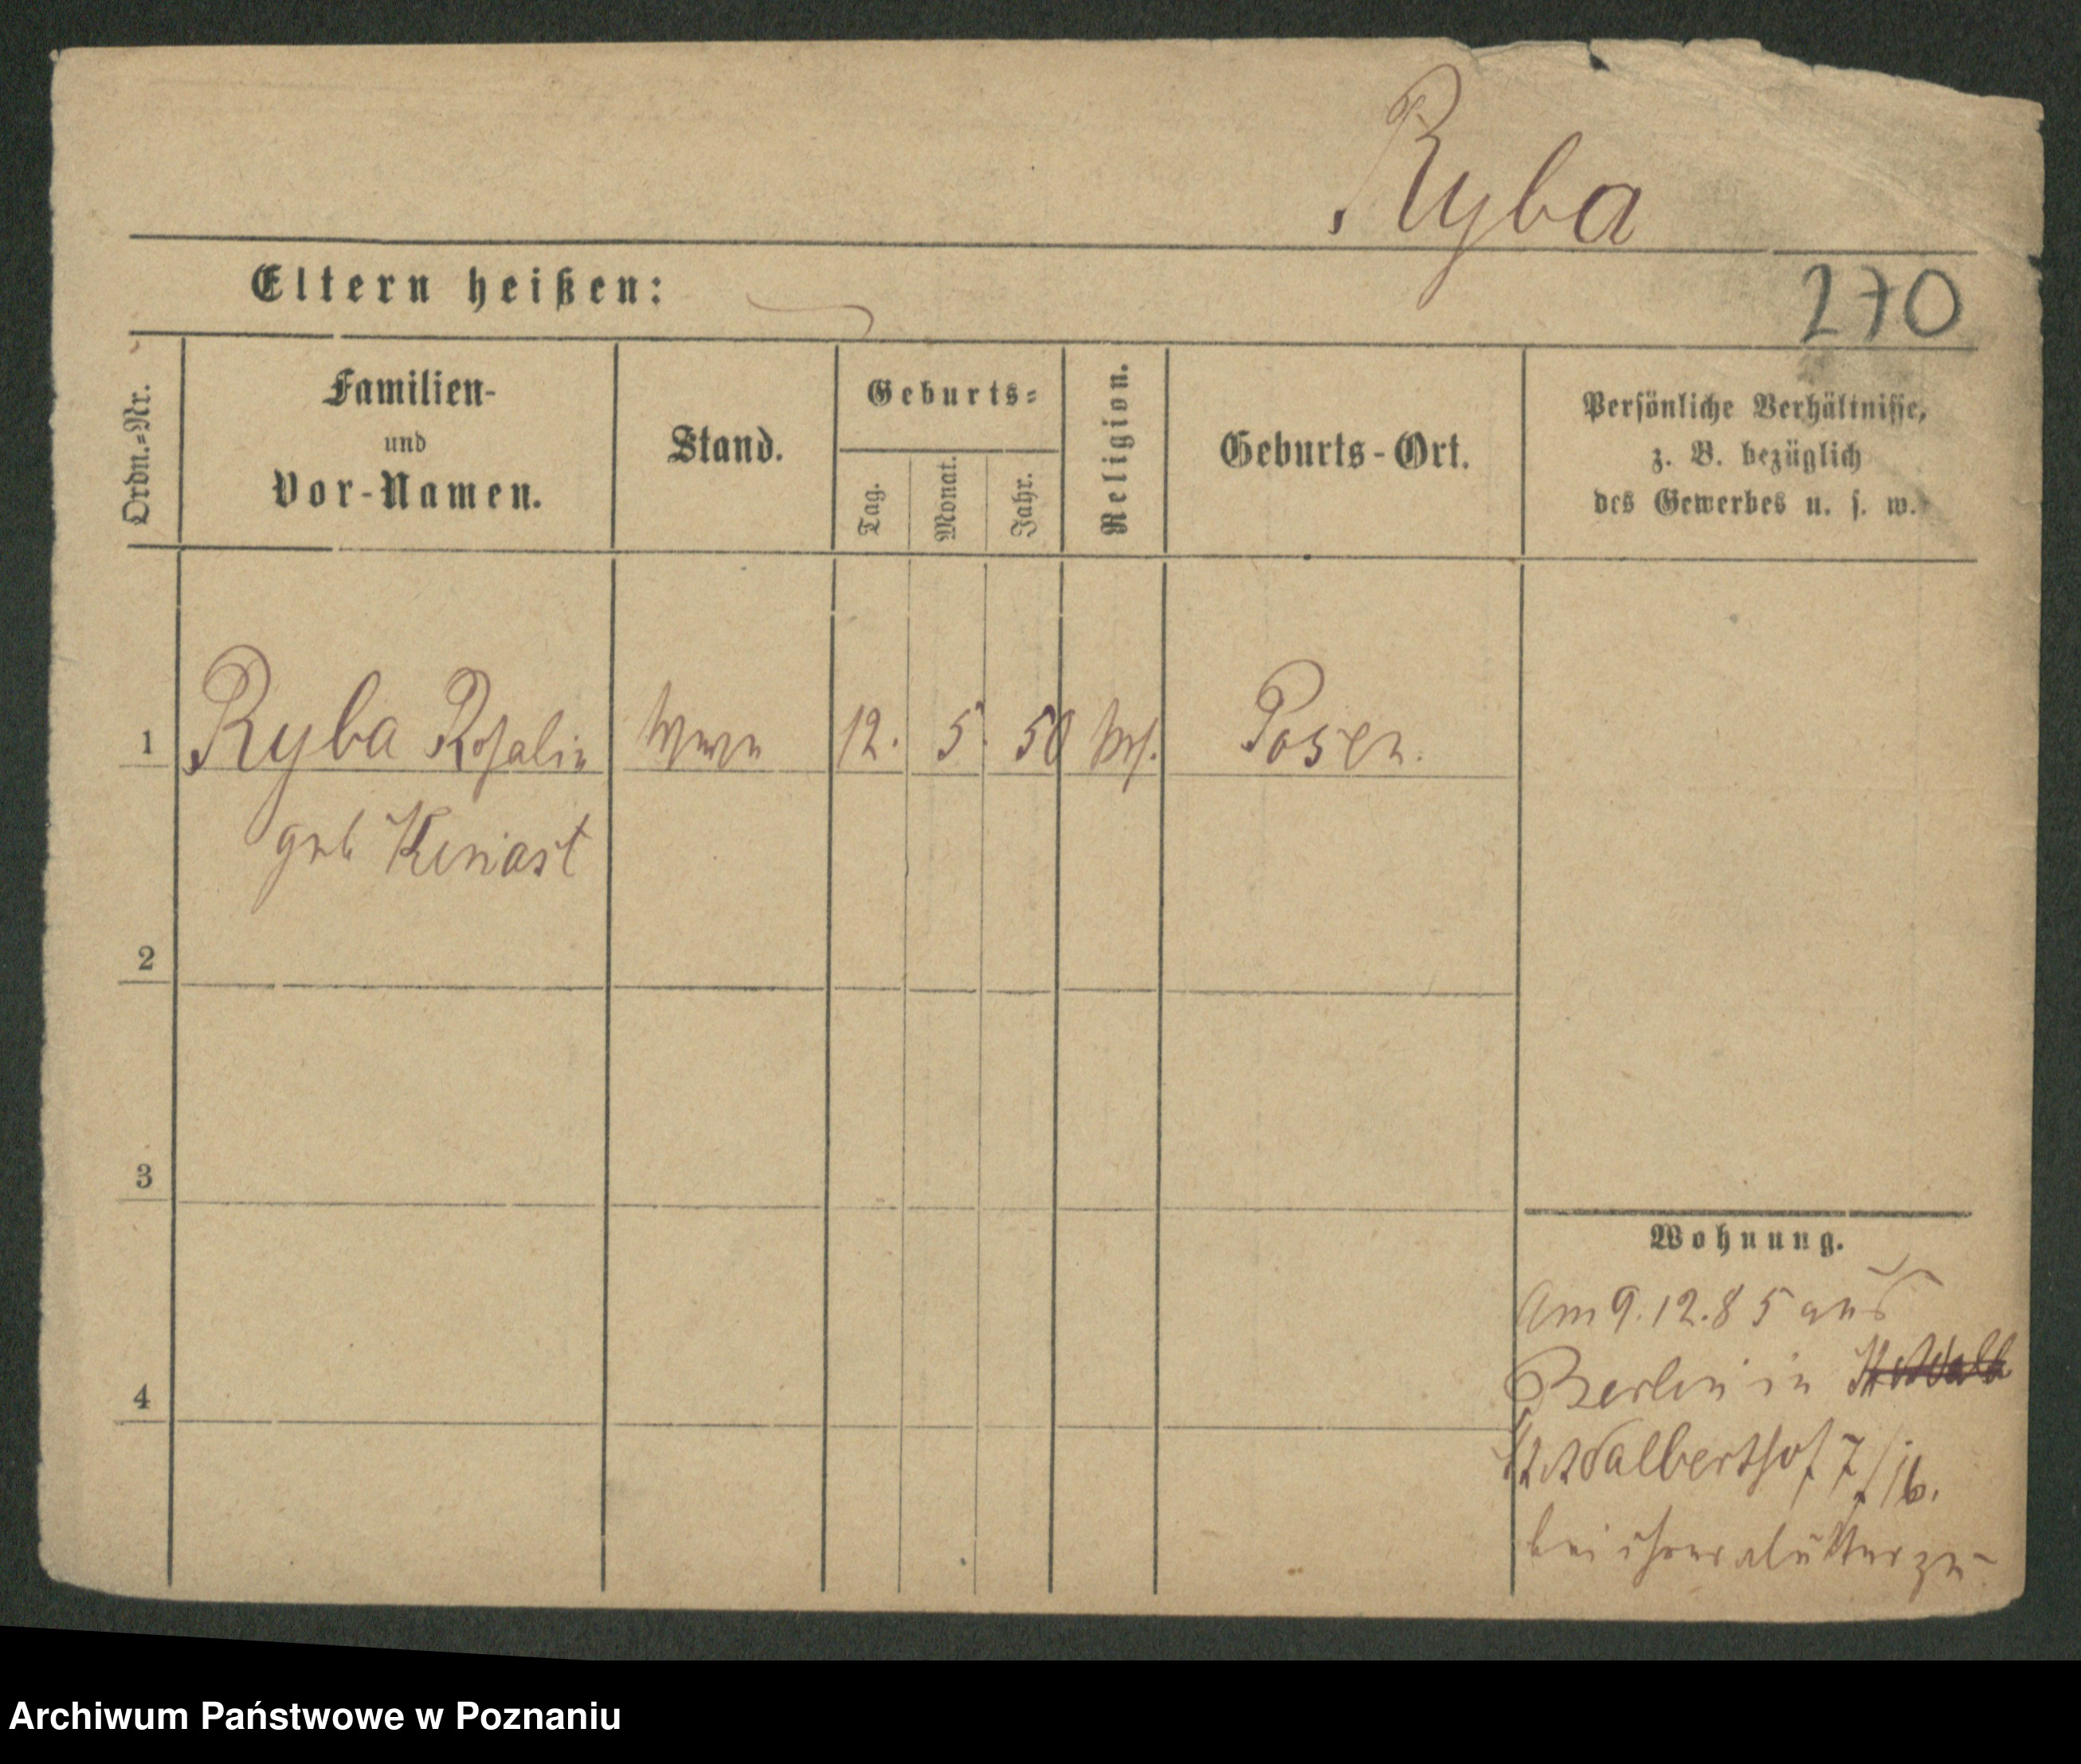 Ryba
270
Eltern heißen:
Ordn.=Nr.
Familien-
und
Vor-Namen.
Stand.
Geburts=
Tag.
Monat.
Jahr.
Religion.
Geburts-Ort.
Persönliche Verhältnisse,
z. B. bezüglich
des Gewerbes u. s. w.
1 Ryba Rosalie 12. 5. 50 Posen.
geb Keniast
2
3
4
Wohnung.
Am 9.12.85 aus
Berlin in
St Adalberthof 7/16.
bei ihrer Mutter zu-
Archiwum Państwowe w Poznaniu